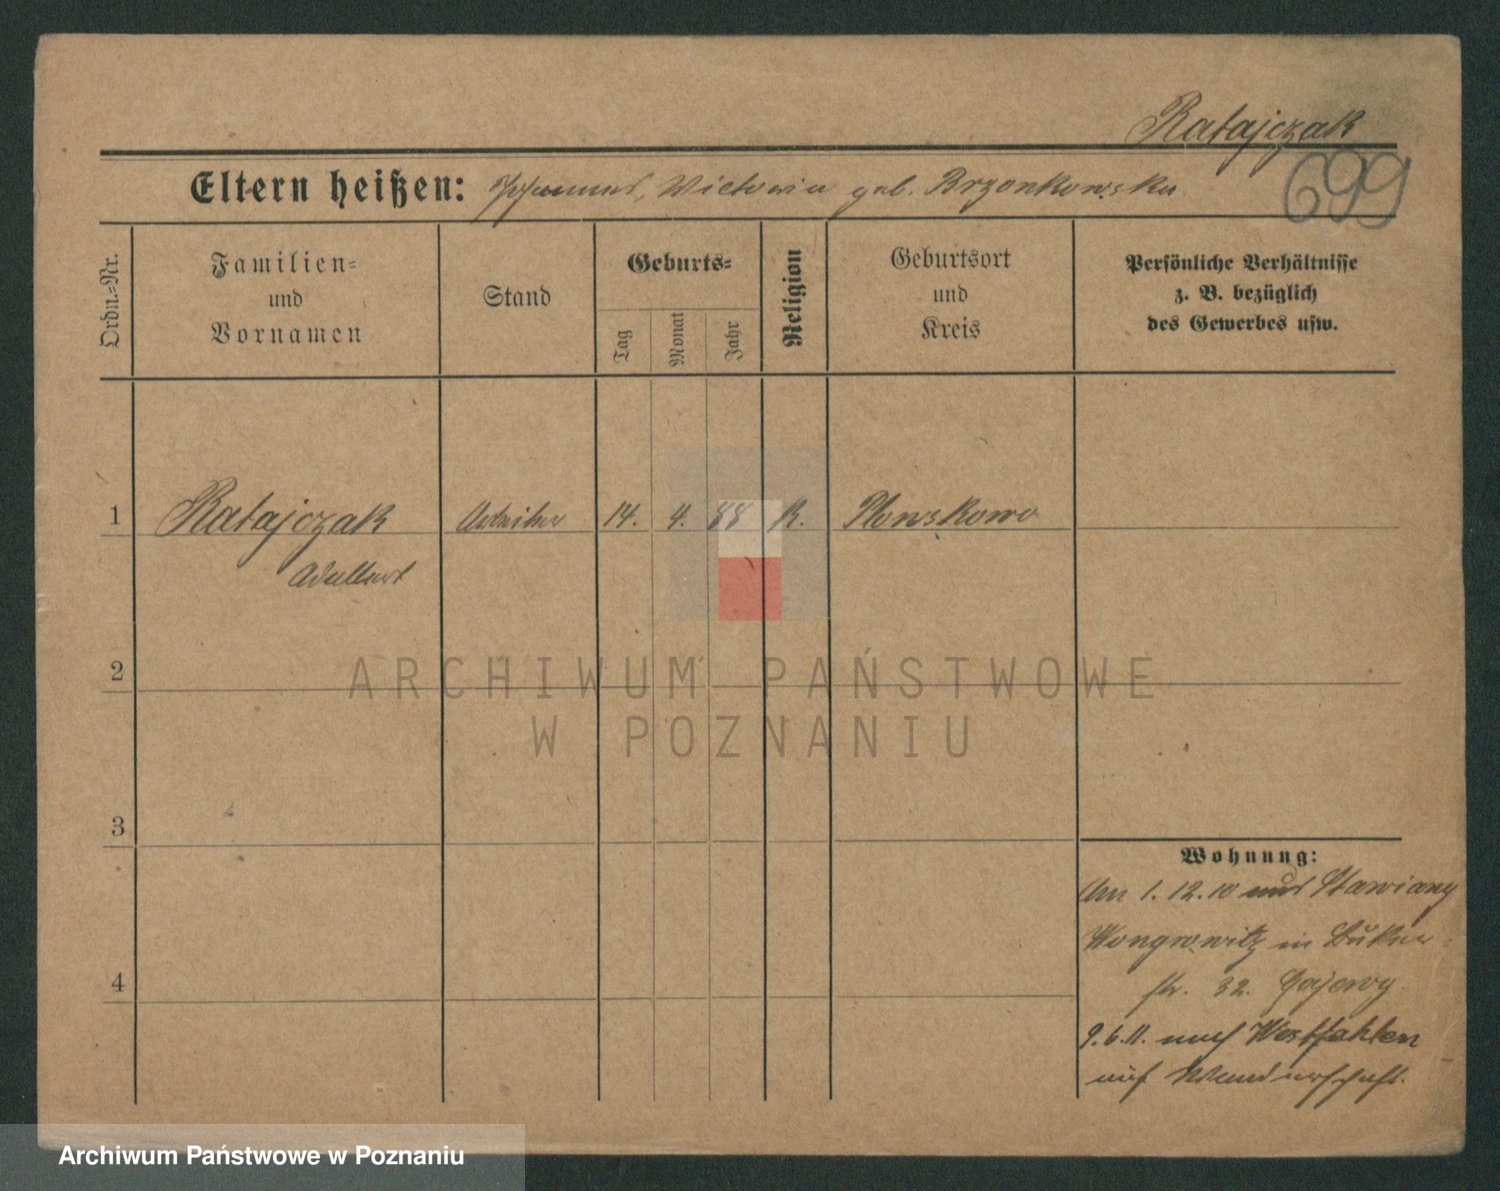 Ratajczak
699
Eltern heißen: Johannes, Victoria geb. Brzonkowska
Ordn.-Nr.
Familien- und Vornamen
Stand
Geburts-
Tag
Monat
Jahr
Religion
Geburtsort und Kreis
Persönliche Verhältnisse
z. B. bezüglich
des Gewerbes usw.
1 Ratajczak Arbeiter 14. 4. 88 K. Plonskowo
Adalbert
2
3
4
Wohnung:
Am 1.12.10 aus Stawiany
Wongrowitz in Buker-
str. 32.
9.6.11. nach Westfahlen
auf Wanderschaft.
ARCHIWUM PAŃSTWOWE
W POZNANIU
Archiwum Państwowe w Poznaniu